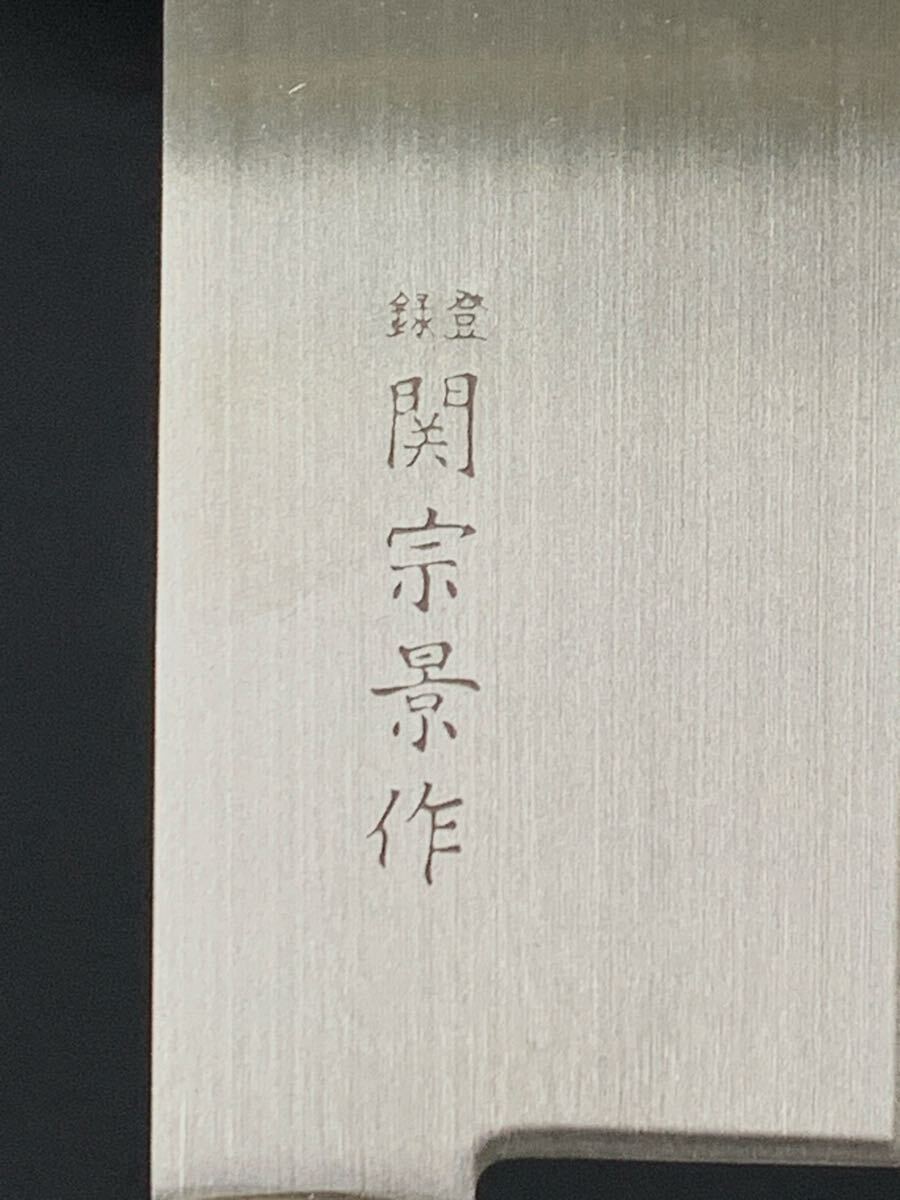 登録
関宗景作